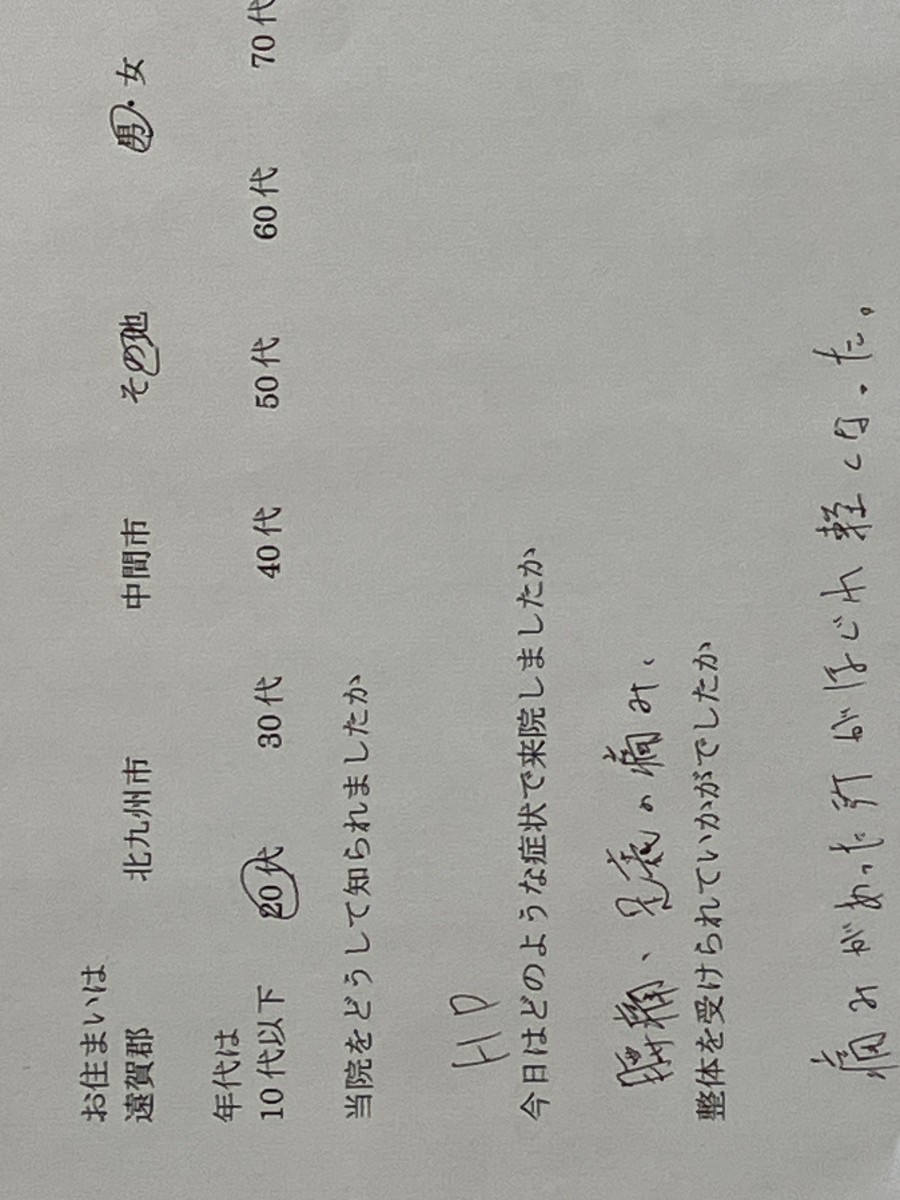 お住まいは
遠賀郡 北九州市 中間市 その他 男・女
年代は
10代以下 20代 30代 40代 50代 60代 70代
当院をどうして知られましたか
HP
今日はどのような症状で来院しましたか
腰痛、足底の痛み、
整体を受けられていかがでしたか
痛みがあった所がほぐれ軽くなった。